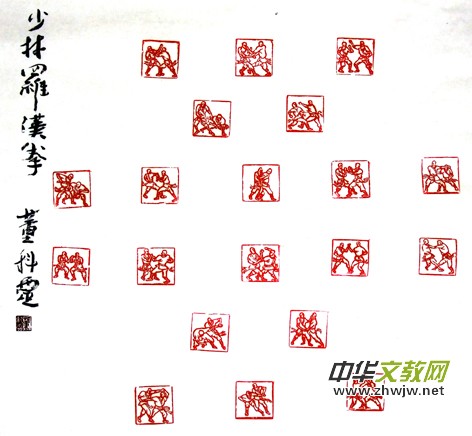 少林羅漢拳
董科霊
中华文教网
www.zhwjw.net